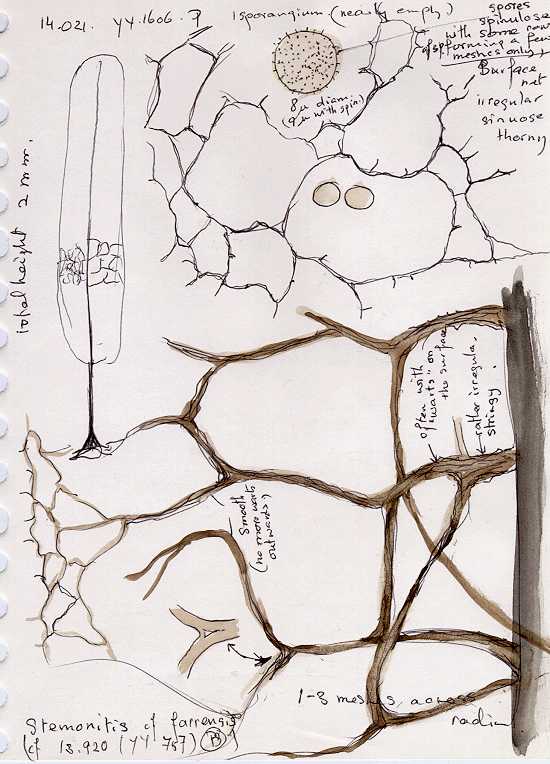 14.021. YY.1606. P
1 sporangium (nearly empty)
spores
spinulose
with some rows
of sp. forming a few
meshes only,
Surface
net
irregular
sinuose
thorny
8 µ diam.
(9 µ with spin.)
total height 2 mm.
often with
"warts" on
the surface
rather irregular.
stringy.
Smooth
(no more warts
outwards)
1-3 meshes across
radius
Stemonitis cf farrensis
(cf 13.920 (YY 757) P)